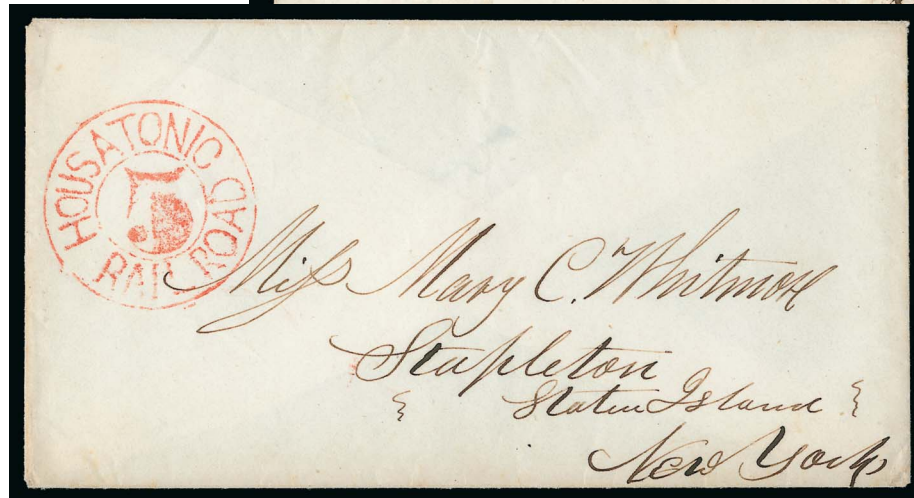 HOUSATONIC
5
RAIL ROAD
Miss Mary C. Whitmore
Stapleton
Staten Island
New York